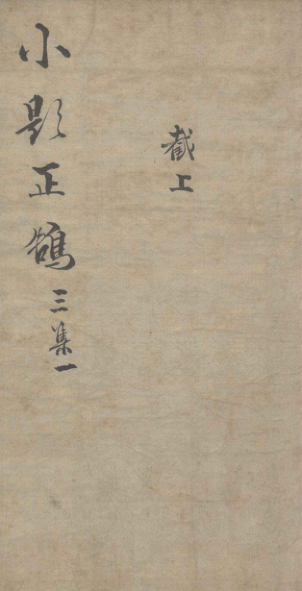 小題正鵠三集一
截上